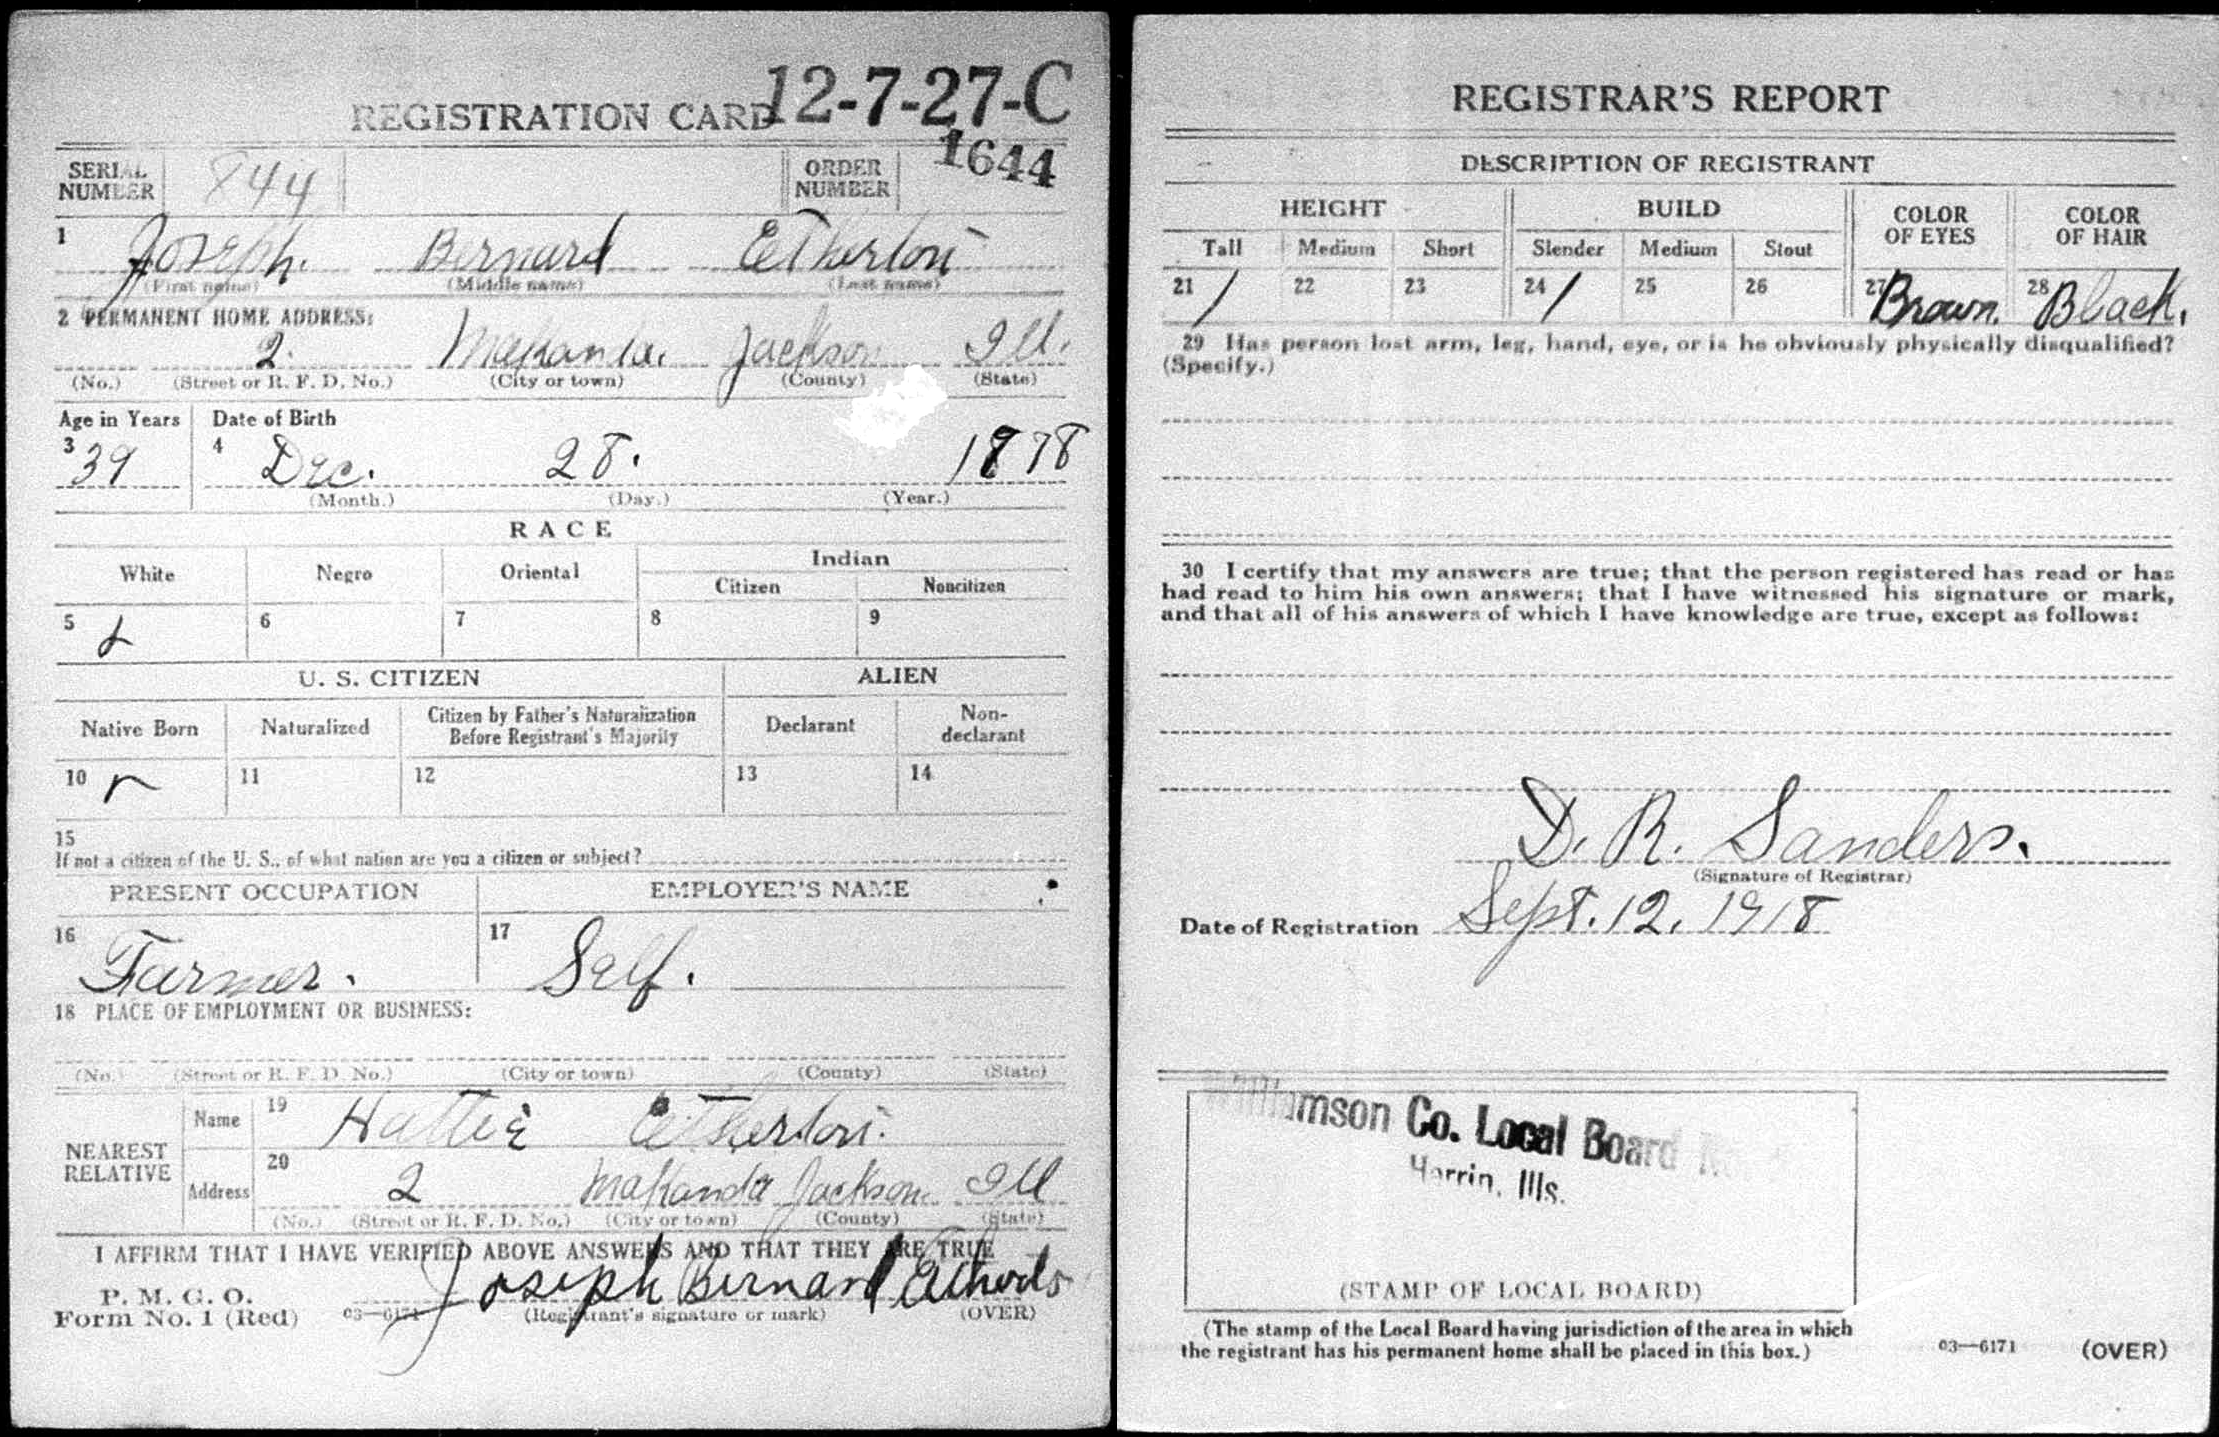 REGISTRATION CARD 12-7-27-C
SERIAL NUMBER 844 ORDER NUMBER 1644
1 Joseph Bernard Etherton
(First name) (Middle name) (Last name)
2 PERMANENT HOME ADDRESS:
2. Makanda. Jackson Ill.
(No.) (Street or R. F. D. No.) (City or town) (County) (State)
Age in Years Date of Birth
3 39 4 Dec. 28. 1878
(Month.) (Day.) (Year.)
RACE
White Negro Oriental Indian
Citizen Noncitizen
5 6 7 8 9
U. S. CITIZEN ALIEN
Native Born Naturalized Citizen by Father's Naturalization Before Registrant's Majority Declarant Non-declarant
10 11 12 13 14
15
If not a citizen of the U. S., of what nation are you a citizen or subject?
PRESENT OCCUPATION EMPLOYER'S NAME
16 Farmer. 17 Self.
18 PLACE OF EMPLOYMENT OR BUSINESS:
(No.) (Street or R. F. D. No.) (City or town) (County) (State)
NEAREST RELATIVE
Name 19 Hattie Etherton.
Address 20 2 Makanda Jackson Ill
(No.) (Street or R. F. D. No.) (City or town) (County) (State)
I AFFIRM THAT I HAVE VERIFIED ABOVE ANSWERS AND THAT THEY ARE TRUE
P. M. G. O.
Form No. 1 (Red) 03—6171 Joseph Bernard
(Registrant's signature or mark) (OVER)
REGISTRAR'S REPORT
DESCRIPTION OF REGISTRANT
HEIGHT BUILD COLOR OF EYES COLOR OF HAIR
Tall Medium Short Slender Medium Stout
21 / 22 23 24 / 25 26 27 Brown. 28 Black.
29 Has person lost arm, leg, hand, eye, or is he obviously physically disqualified?
(Specify.)
30 I certify that my answers are true; that the person registered has read or has
had read to him his own answers; that I have witnessed his signature or mark,
and that all of his answers of which I have knowledge are true, except as follows:
D. R. Sanders.
(Signature of Registrar)
Date of Registration Sept. 12, 1918
Williamson Co. Local Board
Herrin, Ills.
(STAMP OF LOCAL BOARD)
(The stamp of the Local Board having jurisdiction of the area in which
the registrant has his permanent home shall be placed in this box.)
03—6171 (OVER)